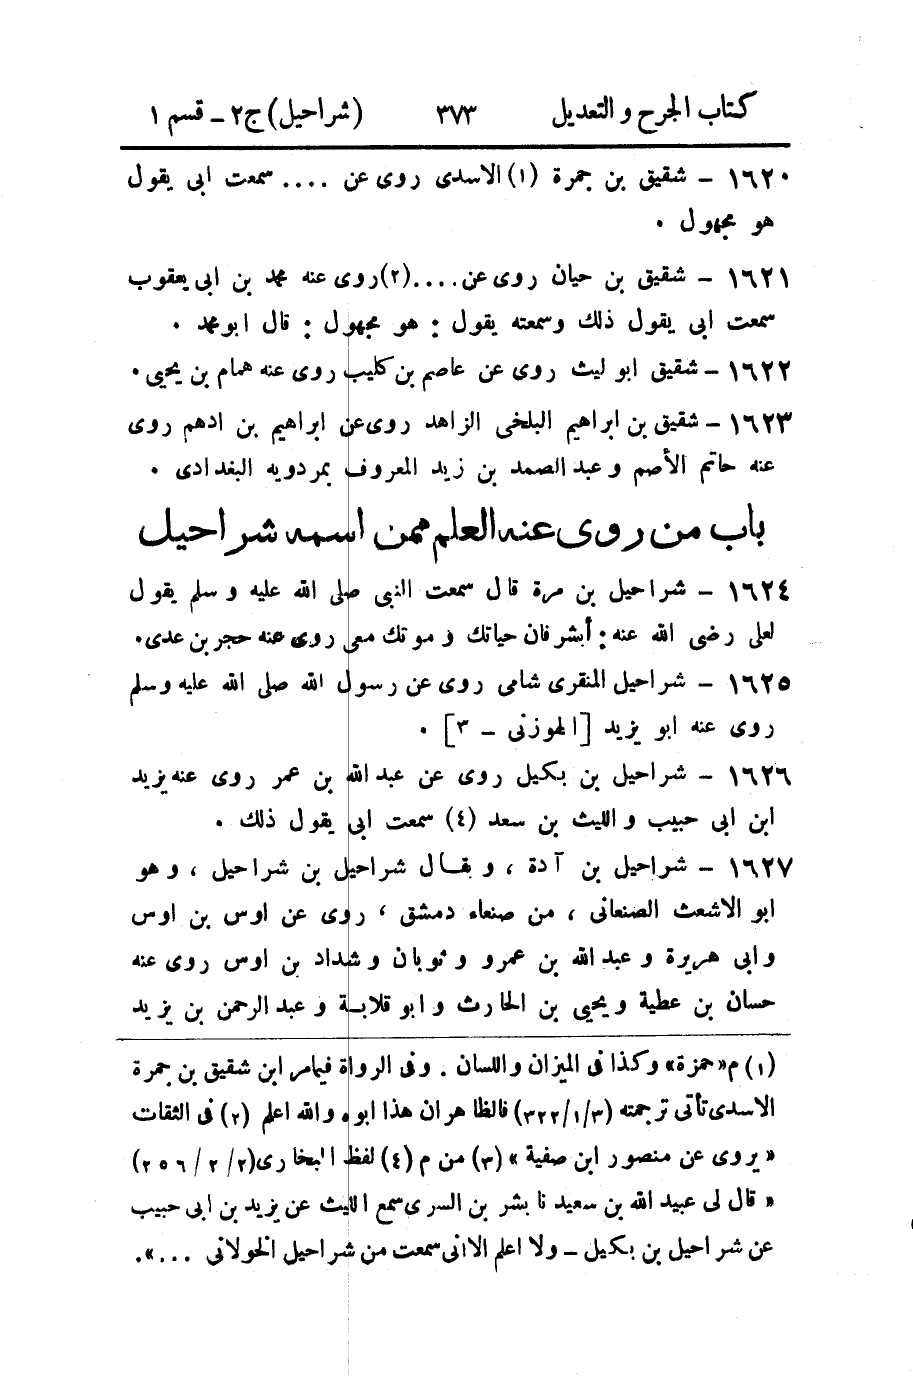 كتاب الجرح والتعديل ٣٧٣ (شراحيل) ج٢ - قسم ١
١٦٢٠ - شقيق بن جمرة (١) الاسدى روى عن .... سمعت ابى يقول
هو مجهول .
١٦٢١ - شقيق بن حيان روى عن....(٢) روى عنه محمد بن ابى يعقوب
سمعت ابى يقول ذلك وسمعته يقول : هو مجهول : قال ابو محمد .
١٦٢٢ - شقيق ابو ليث روى عن عاصم بن كليب روى عنه همام بن يحيى .
١٦٢٣ - شقيق بن ابراهيم البلخى الزاهد روى عن ابراهيم بن ادهم روى
عنه حاتم الأصم وعبد الصمد بن زيد المعروف بمردويه البغدادى .
باب من روى عنه العلم ممن اسمه شراحيل
١٦٢٤ - شراحيل بن مرة قال سمعت النبى صلى الله عليه وسلم يقول
لعلى رضى الله عنه : أبشر فان حياتك و موتك معى روى عنه حجر بن عدى .
١٦٢٥ - شراحيل المنقرى شامى روى عن رسول الله صلى الله عليه وسلم
روى عنه ابو يزيد [الهوزنى - ٣] .
١٦٢٦ - شراحيل بن بكيل روى عن عبد الله بن عمر روى عنه يزيد
ابن ابى حبيب والليث بن سعد (٤) سمعت ابى يقول ذلك .
١٦٢٧ - شراحيل بن آدة ، و يقال شراحيل بن شراحيل ، وهو
ابو الاشعث الصنعانى ، من صنعاء دمشق ، روى عن اوس بن اوس
وابى هريرة وعبد الله بن عمرو وثوبان وشداد بن اوس روى عنه
حسان بن عطية ويحيى بن الحارث وابو قلابة وعبد الرحمن بن يزيد
(١) م«حمزة» وكذا فى الميزان واللسان . وفى الرواة فيما مر ابن شقيق بن جمرة
الاسدى تأتى ترجمته (٣٢٢/١/٣) فالظاهر ان هذا ابوه والله اعلم (٢) فى الثقات
« يروى عن منصور ابن صفية » (٣) من م (٤) لفظ البخارى (٢٥٦/٢/٢)
« قال لى عبيد الله بن سعيد نا بشر بن السرى سمع الليث عن يزيد بن ابى حبيب
عن شراحيل بن بكيل - ولا اعلم الا انى سمعت من شراحيل الخولانى ...».